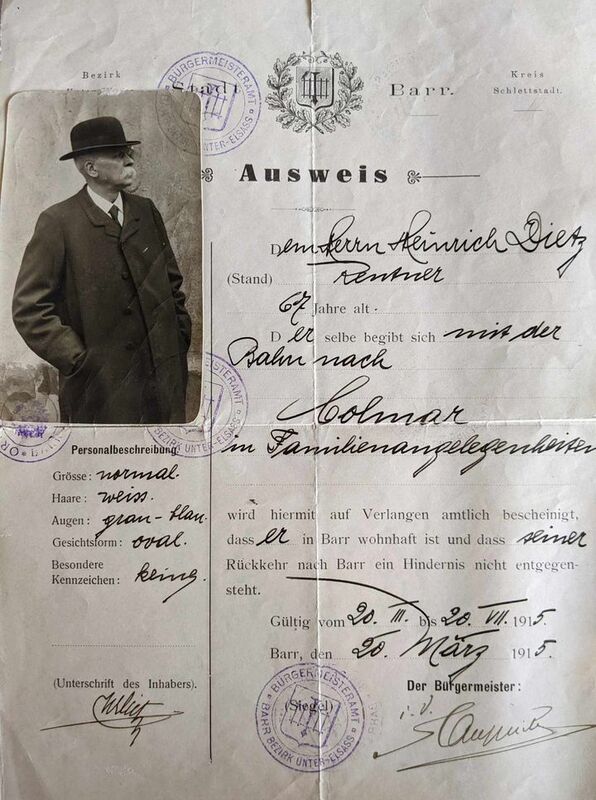 Bezirk
Kreis
Stadt Barr.
Schlettstadt.
BÜRGERMEISTERAMT
BARR BEZIRK UNTER-ELSASS
Ausweis
Dem Herrn Heinrich Dietz
(Stand) Rentner
67 Jahre alt.
Der selbe begibt sich mit der
Bahn nach
Colmar
in Familienangelegenheiten
wird hiermit auf Verlangen amtlich bescheinigt,
dass er in Barr wohnhaft ist und dass seiner
Rückkehr nach Barr ein Hindernis nicht entgegen-
steht.
Gültig vom 20. III. bis 20. VII. 1915.
Barr, den 20. März 1915.
Der Bürgermeister:
i. V.
Personalbeschreibung.
Grösse: normal.
Haare: weiss.
Augen: grau-blau.
Gesichtsform: oval.
Besondere
Kennzeichen: keine.
(Unterschrift des Inhabers).
(Siegel)
BÜRGERMEISTERAMT
BARR BEZIRK UNTER-ELSASS